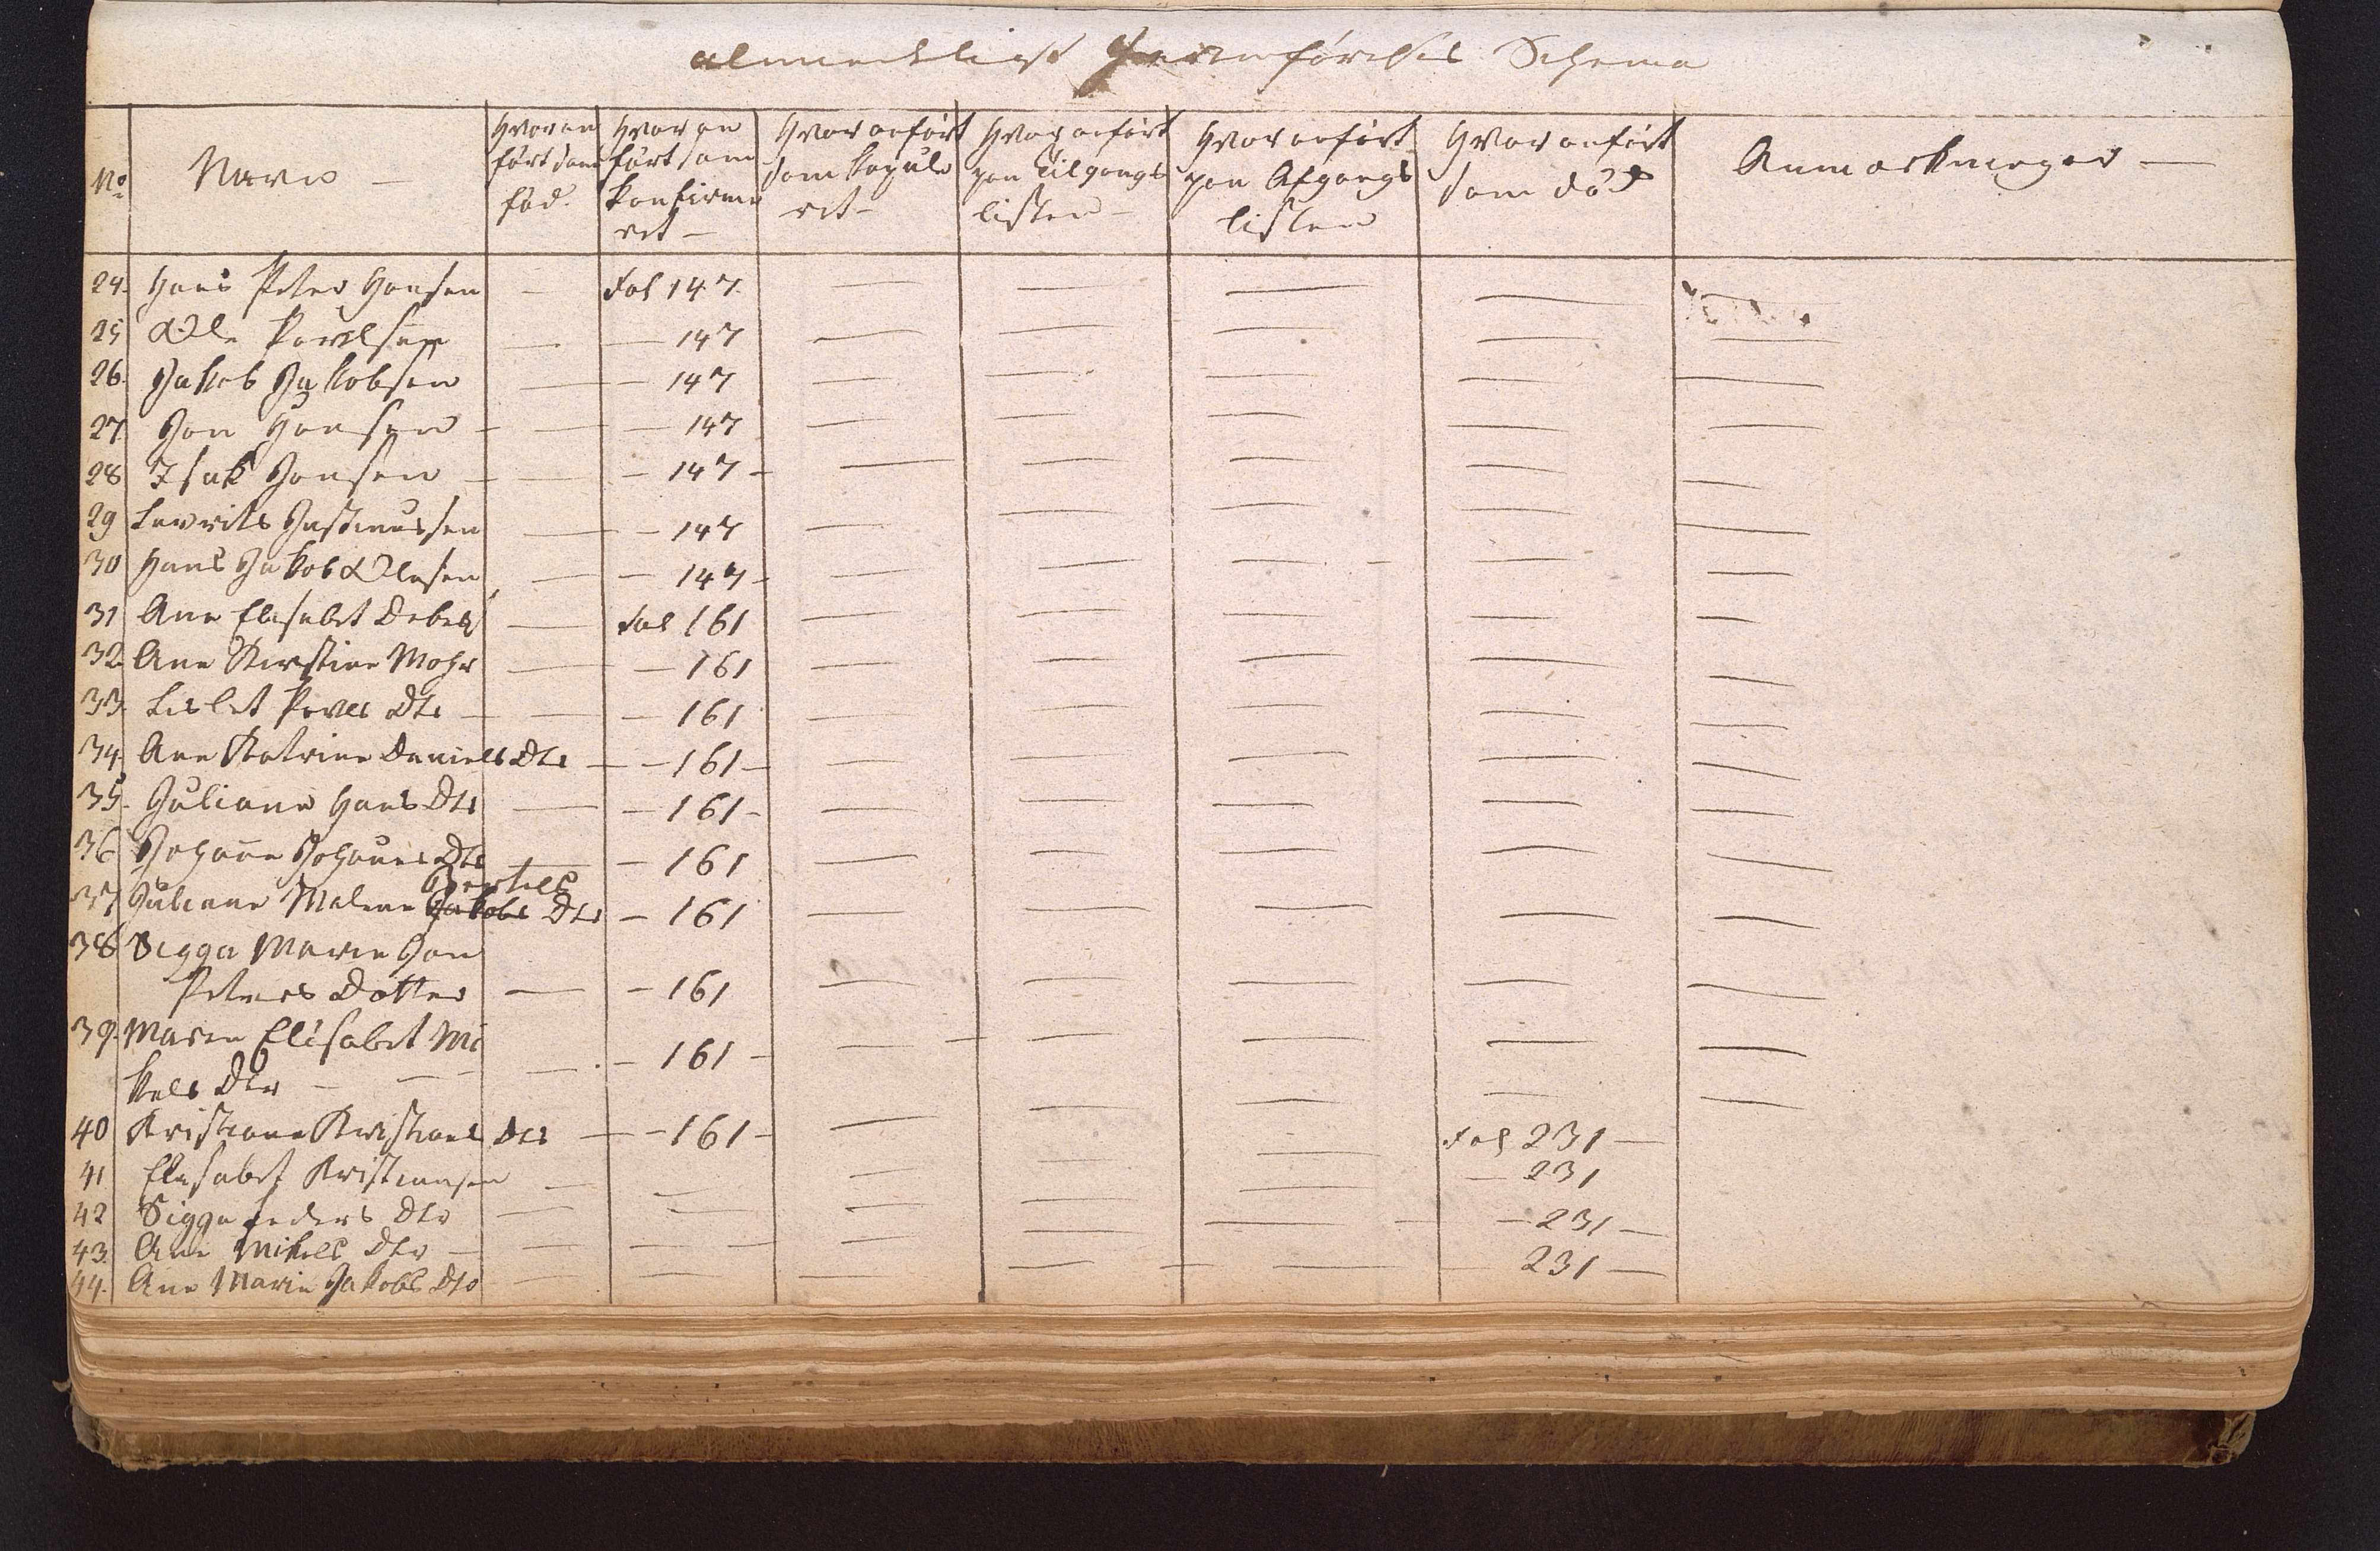 almindeligt Jevnførelses Schema
No Navn — Hvor anført som fød. Hvor anført som konfirmeret — Hvor anført som kopuleret — Hvor anført paa Tilgangslisten — Hvor anført paa Afgangslisten Hvor anført som død Anmærkninger —
24. Hans Peter Hansen — Fol 147 — — — —
25 Ole Povelsen — — 147 — — — — —
26. Jakob Jakobsen — — 147 — — — — —
27 Jon Hansen — — — 147 — — — — —
28 Isak Jonsen — — — 147 — — — — — —
29 Lavrits Justinussen — — 147 — — — — —
30 Hans Jakob Olesen — — 147 — — — — — —
31 Ane Elisabet Debes — Fol 161 — — — — —
32. Ane Kirstine Mohr — — 161 — — — — —
33. Lisbet Povels Dtr — — — 161 — — — — —
34. Ane Katrine Daniels Dtr — — 161 — — — — — —
35. Juliane Hans Dtr — — 161 — — — — — —
36 Johanne Johannes Dtr — — 161 — — — — —
Bertels
37 Juliane Malene Jakobs Dtr — 161 — — — — —
38 Sigga Marie Jon
Peters Dotter — — 161 — — — — —
39. Maren Elisabet Mi
kels Dtr — — — — 161 — — — — — —
40 Kristiane Kristians Dtr — — 161 — — — — Fol 231 —
41 Elisabet Kristiansen — — — — — — 231
42 Sigga Peders Dtr — — — — — — 231 —
43. Ane Mikels Dtr — — — — — — 231 —
44. Ane Marie Jakobs Dtr — — — — —